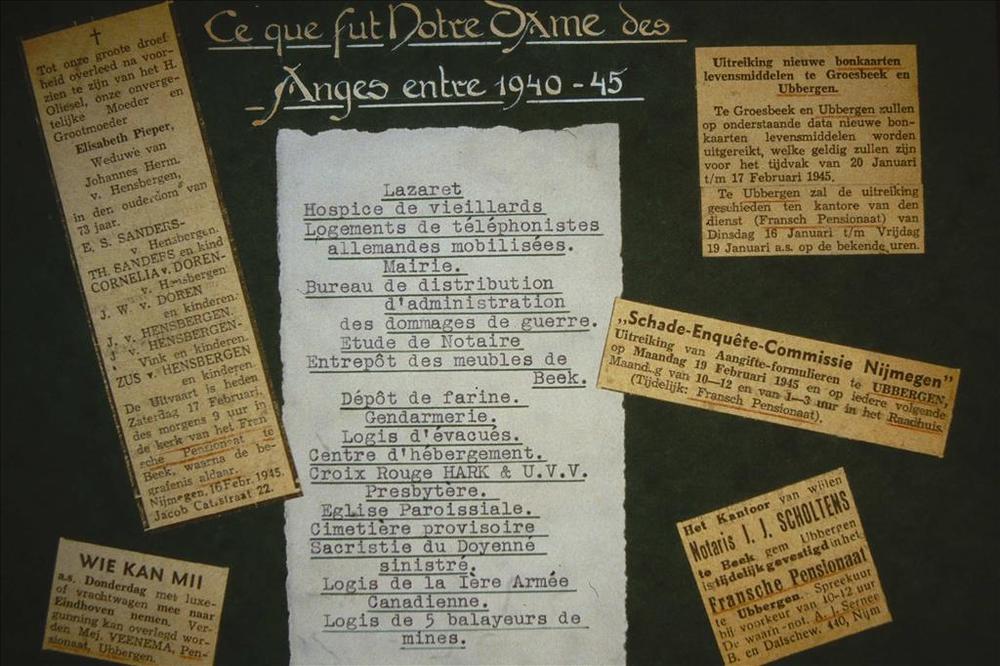 Ce que fut Notre Dame des
Anges entre 1940-45
Tot onze groote droef-
heid overleed na voor-
zien te zijn van het H.
Oliesel, onze onverge-
telijke Moeder en
Grootmoeder
Elisabeth Pieper,
Weduwe van
Johannes Herm.
v. Hensbergen,
in den ouderdom van
73 jaar.
E. S. SANDERS-
v. Hensbergen.
TH. SANDERS en kind
CORNELIA v. DOREN-
v. Hensbergen
J. W. v. DOREN
en kinderen.
J. v. HENSBERGEN.
J. v. HENSBERGEN-
Vink en kinderen.
ZUS v. HENSBERGEN
en kinderen.
De Uitvaart is heden
Zaterdag 17 Februari,
des morgens 9 uur in
de kerk van het Fren
sche Pensionaat te
Beek, waarna de be-
grafenis aldaar.
Nijmegen, 16 Febr. 1945.
Jacob Cat.straat 22.
WIE KAN MIJ
a.s. Donderdag met luxe-
of vrachtwagen mee naar
Eindhoven nemen. Ver-
gunning kan overlegd wor-
den Mej. VEENEMA, Pen-
sionaat, Ubbergen.
Lazaret
Hospice de vieillards
Logements de téléphonistes
allemandes mobilisées.
Mairie.
Bureau de distribution
d'administration
des dommages de guerre.
Etude de Notaire
Entrepôt des meubles de
Beek.
Dépôt de farine.
Gendarmerie.
Logis d'évacués.
Centre d'hébergement.
Croix Rouge HARK & U.V.V.
Presbytère.
Eglise Paroissiale.
Cimetière provisoire
Sacristie du Doyenné
sinistré.
Logis de la Ière Armée
Canadienne.
Logis de 5 balayeurs de
mines.
Uitreiking nieuwe bonkaarten
levensmiddelen te Groesbeek en
Ubbergen.
Te Groesbeek en Ubbergen zullen
op onderstaande data nieuwe bon-
kaarten levensmiddelen worden
uitgereikt, welke geldig zullen zijn
voor het tijdvak van 20 Januari
t/m 17 Februari 1945.
Te Ubbergen zal de uitreiking
geschieden ten kantore van den
dienst (Fransch Pensionaat) van
Dinsdag 16 Januari t/m Vrijdag
19 Januari a.s. op de bekende uren.
„Schade-Enquête-Commissie Nijmegen"
Uitreiking van Aangifte-formulieren te UBBERGEN,
op Maandag 19 Februari 1945 en op iedere volgende
Maand.g van 10—12 en van 1—3 uur in het Raadhuis.
(Tijdelijk: Fransch Pensionaat).
Het Kantoor van wijlen
Notaris I. J. SCHOLTENS
te Beek gem Ubbergen
is tijdelijk gevestigd in het
Fransche Pensionaat
te Ubbergen. Spreekuur
bij voorkeur van 10-12 uur
De waarn-not. A. J. Sernee
B. en Dalschew. 440, Nijm